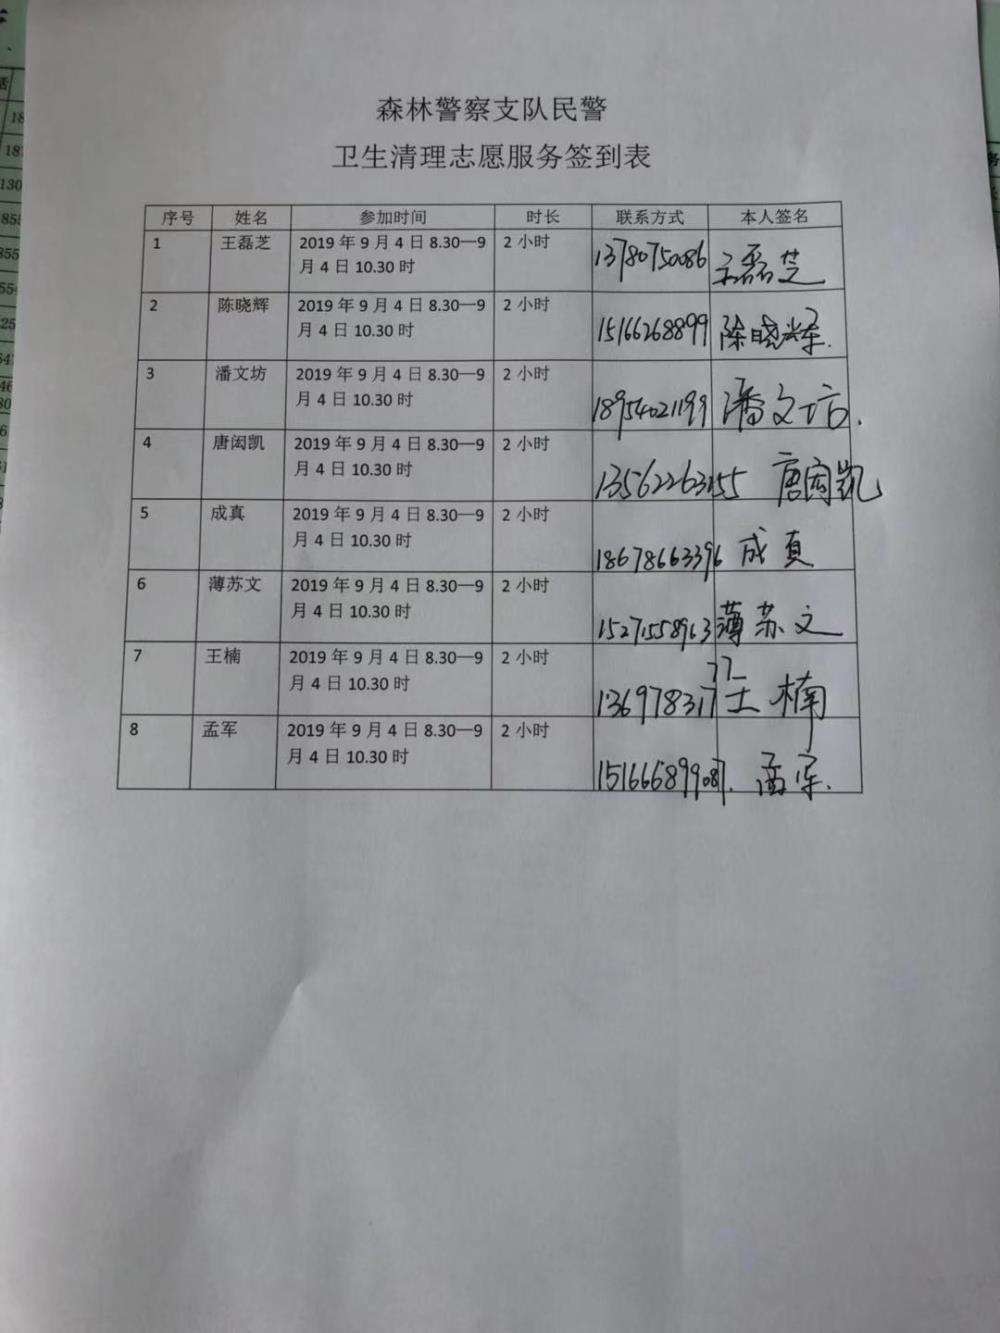 森林警察支队民警
卫生清理志愿服务签到表
序号 姓名 参加时间 时长 联系方式 本人签名
1 王磊芝 2019 年 9 月 4 日 8.30—9 2 小时
月 4 日 10.30 时 13780750086 王磊芝
2 陈晓辉 2019 年 9 月 4 日 8.30—9 2 小时
月 4 日 10.30 时 15166268899 陈晓辉.
3 潘文坊 2019 年 9 月 4 日 8.30—9 2 小时
月 4 日 10.30 时 18954021199 潘文坊.
4 唐闳凯 2019 年 9 月 4 日 8.30—9 2 小时
月 4 日 10.30 时 13562263155 唐闳凯
5 成真 2019 年 9 月 4 日 8.30—9 2 小时
月 4 日 10.30 时 18678663396 成真
6 薄苏文 2019 年 9 月 4 日 8.30—9 2 小时
月 4 日 10.30 时 15271558963 薄苏文
7 王楠 2019 年 9 月 4 日 8.30—9 2 小时
月 4 日 10.30 时 王楠
8 孟军 2019 年 9 月 4 日 8.30—9 2 小时
月 4 日 10.30 时 孟军.